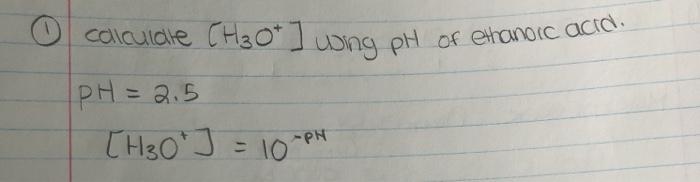 ① calculate [H₃O⁺] using pH of ethanoic acid.
pH = 2.5
[H₃O⁺] = 10⁻ᵖᴴ